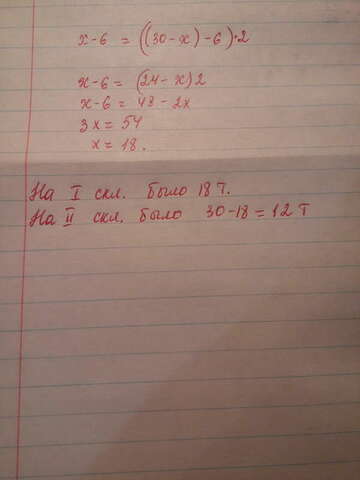 x-6 = ((30-x)-6)·2
x-6 = (24-x)2
x-6 = 48-2x
3x = 54
x = 18.
На I скл. было 18 т.
На II скл. было 30-18=12 т